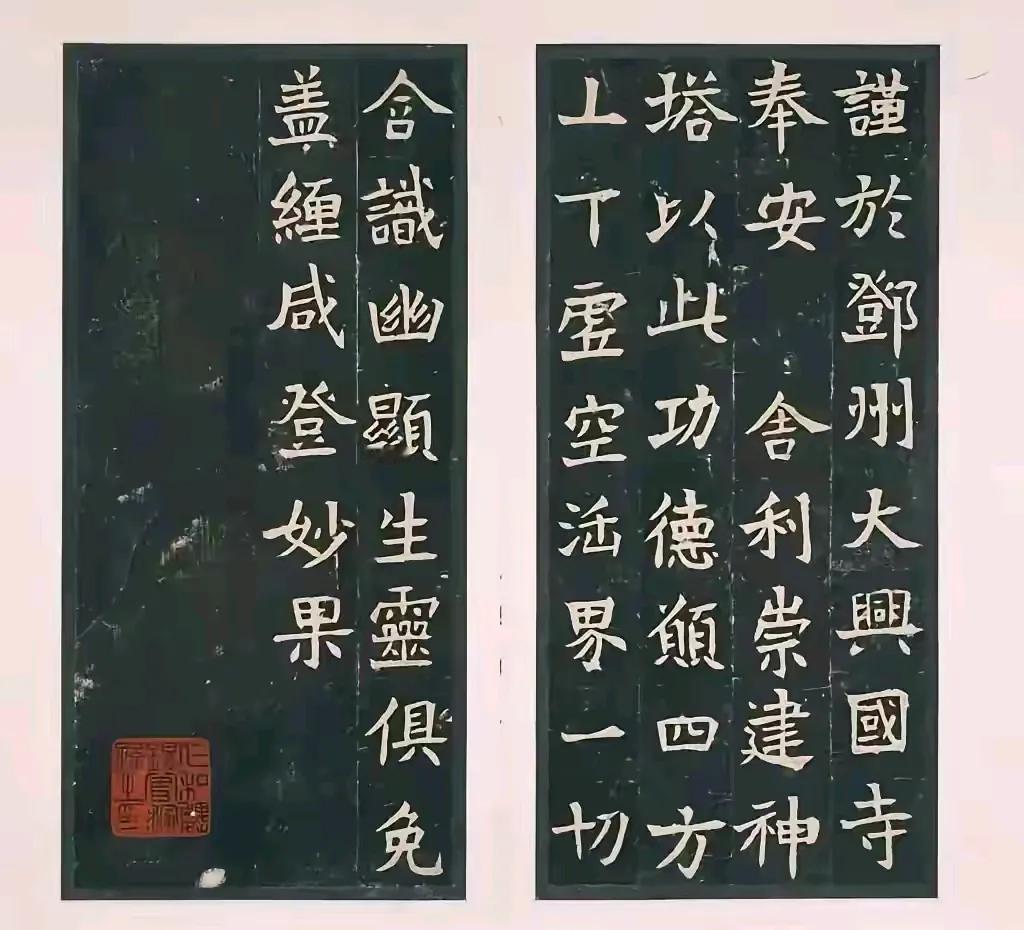 謹於鄧州大興國寺
奉安 舍利崇建神
塔以此功德願四方
上下虛空法界一切
含識幽顯生靈俱免
盖纏咸登妙果